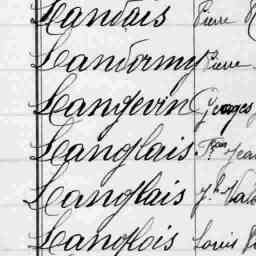 Landais Pierre
Landormy Pierre
Langevin Georges
Langlais Fçois Jean
Langlais Jh
Langlois Louis